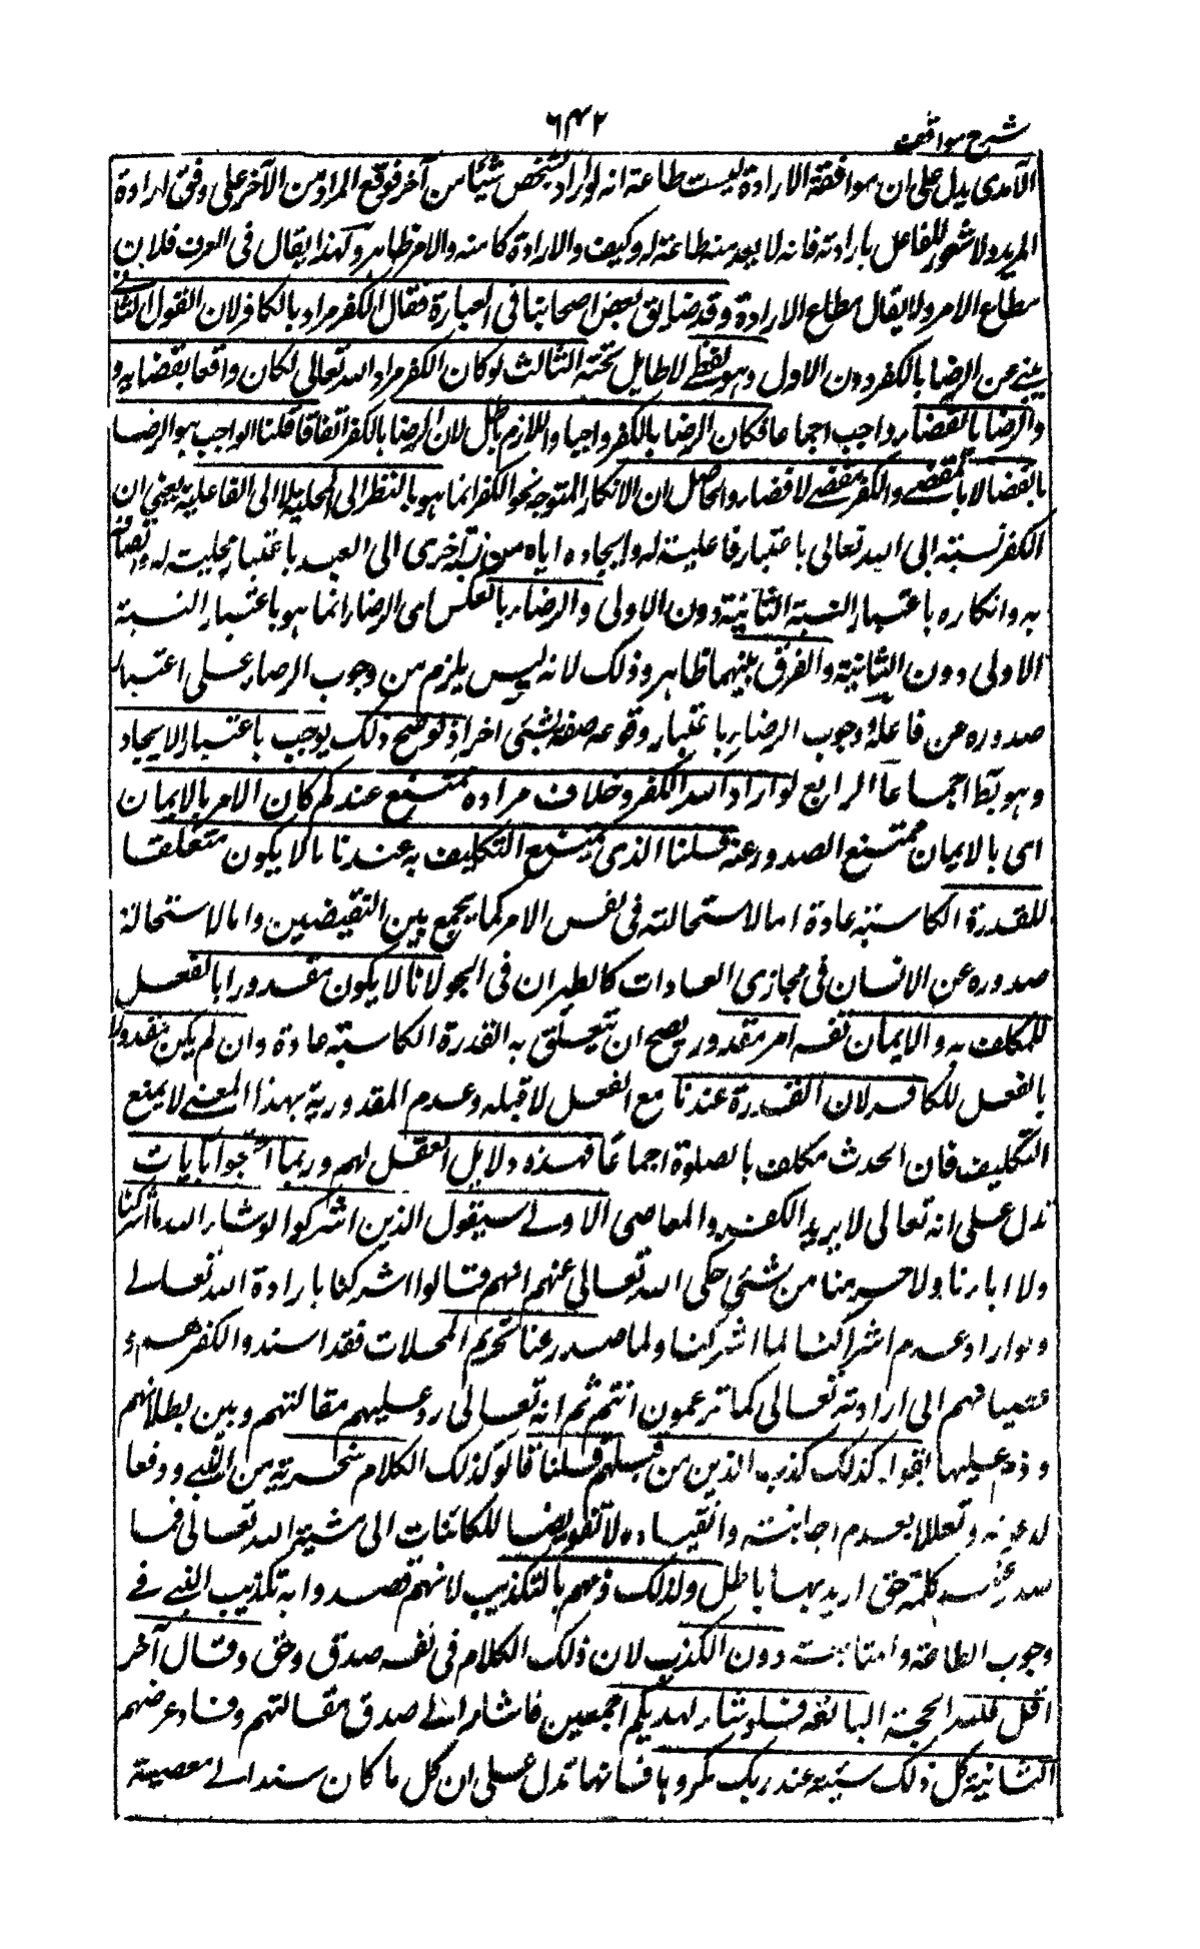 شرح مواقف
٦٤٢
الآمدى يدل على ان موافقة الارادة ليست طاعة انه لو اراد شخص شيئا من آخر فوقع المراد من الآخر على وفق ارادة
المريد ولا شعور للفاعل بارادته فانه لا يعد منه طاعة له وكيف والارادة كامنة والامر ظاهر ولهذا يقال فى العرف فلان
مطاع الامر ولا يقال مطاع الارادة وقد ضايق بعض اصحابنا فى العبارة فقال الكفر مراد بالكافر لان القول الثانى
ينبئ عن الرضا بالكفر دون الاول وهو لفظى لا طايل تحته الثالث لو كان الكفر مراد الله تعالى لكان واقعا بقضايه و
والرضا بالقضاء واجب اجماعا فكان الرضا بالكفر واجبا واللازم باطل لان الرضا بالكفر اتفاقا قلنا الواجب هو الرضا
بالقضا لا بالمقضى والكفر مقضى لا قضاء والحاصل ان الانكار المتوجه نحو الكفر انما هو بالنظر الى المحلية لا الى الفاعلية يعنى ان
الكفر نسبته الى الله تعالى باعتبار فاعليته له وايجاده اياه ونسبته اخرى الى العبد باعتبار محليته له واتصافه
به وانكاره باعتبار النسبة الثانية دون الاولى والرضاء بالعكس اى الرضاء انما هو باعتبار النسبة
الاولى دون الثانية والفرق بينهما ظاهر وذلك لانه ليس يلزم من وجوب الرضاء على اعتبار
صدوره عن فاعله وجوب الرضاء باعتبار وقوعه صفة لشئ اخر اذ لو صح ذلك يوجب باعتبار الايجاد
وهو بط اجماعا الرابع لو اراد الله الكفر وخلاف مراده ممتنع عندكم كان الامر بالايمان
اى بالايمان ممتنع الصدور عنه قلنا الذى يمتنع التكليف به عندنا ما لا يكون متعلقا
للقدرة الكاسبة عادة اما لاستحالته فى نفس الامر كما يجمع بين النقيضين واما لاستحالة
صدوره عن الانسان فى مجازى العادات كالطيران فى الجو لا ما لا يكون مقدورا بالفعل
للمكلف به والايمان نفسه امر مقدور يصح ان تتعلق به القدرة الكاسبة عادة وان لم يكن مقدورا
بالفعل للكافر لان القدرة عندنا مع الفعل لا قبله وعدم المقدورية بهذا المعنى لا يمنع
التكليف فان المحدث مكلف بالصلوة اجماعا فهذه دلايل العقل لهم وربما احتجوا بآيات
تدل على انه تعالى لا يريد الكفر والمعاصى الاولى سيقول الذين اشركوا لو شاء الله ما اشركنا
ولا اباؤنا ولا حرمنا من شئ حكى الله تعالى عنهم انهم قالوا اشركنا بارادة الله تعالى
ولو اراد عدم اشراكنا لما اشركنا ولما صدر عنا تحريم المحللات فقد اسندوا كفرهم و
عصيانهم الى ارادته تعالى كما تزعمون انتم ثم انه تعالى رد عليهم مقالتهم وبين بطلانهم
وذمهم عليها بقوله كذلك كذب الذين من قبلهم قلنا قالوا ذلك الكلام سخرية من النبى ودفعا
لدعوته وتعللا بعدم اجابته وانقياده لا تفويضا للكائنات الى مشية الله تعالى فما
صدر عنهم كلمة حق اريد بها باطل ولذلك ذمهم بالتكذيب لانهم قصدوا به تكذيب النبى فى
وجوب الطاعة والمتابعة دون الكذب لان ذلك الكلام فى نفسه صدق وحق وقال آخر
اقل فلله الحجة البالغة فلو شاء لهديكم اجمعين فاشار الى صدق مقالتهم وفساد غرضهم
الثانية كل ذلك سيئه عند ربك مكروها فانها تدل على ان كل ما كان سندا لى معصية